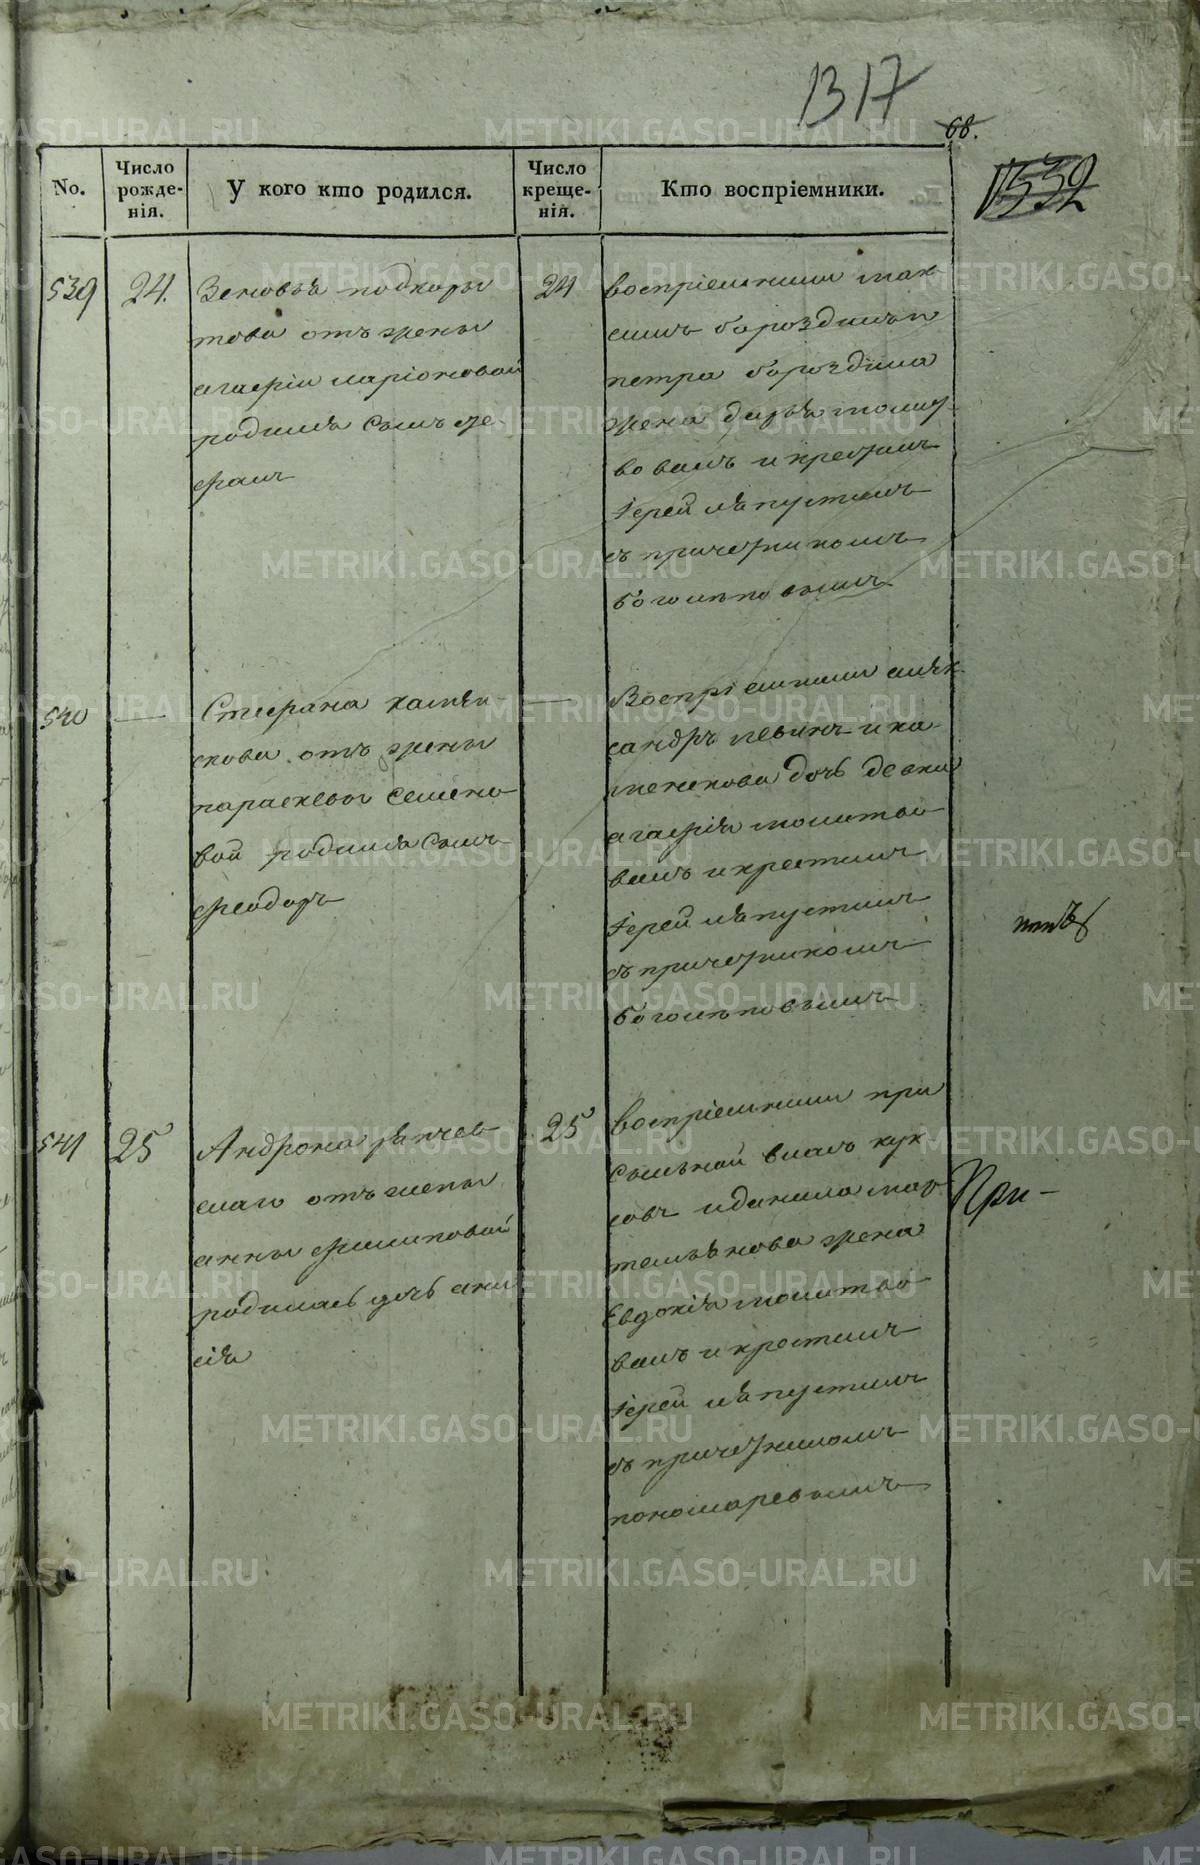 1317
68.
1532
No.
Число рожде-нія.
У кого кто родился.
Число креще-нія.
Кто воспріемники.
539
24.
Зеновья подкоры
това отъ жены
агафіи ларіоновой
родился сынъ фе
фанъ
24
воспріемники мак
симъ бороздинъ и
петра бороздина
жена дарья молит
вовалъ и крестилъ
іерей ляпустинъ
съ причетникомъ
боголеповымъ
540
—
Стефана камен
скова отъ жены
параскевы семено
вой родился сынъ
феодоръ
—
Воспріемники алек
сандръ левинъ и ка
менскова дочь девка
агафія молитво
валъ и крестилъ
іерей ляпустинъ
съ причетникомъ
боголеповымъ
541
25
Андрона
отъ жены
анны филиповой
родилась дочь ани
сія
25
воспріемники при
сыльной
и данила мар
жена
Евдокія молитво
валъ и крестилъ
іерей ляпустинъ
съ причетникомъ
пономаревымъ
При-
METRIKI.GASO-URAL.RU